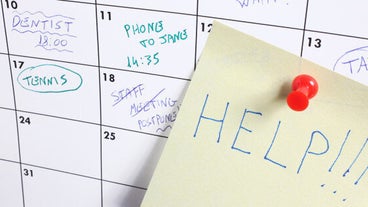 10
DENTIST
18:00
11
PHONE
TO JANE
14:35
13
17
TENNIS
18
STAFF
MEETING
POSTPONED
24
25
31
HELP!!!